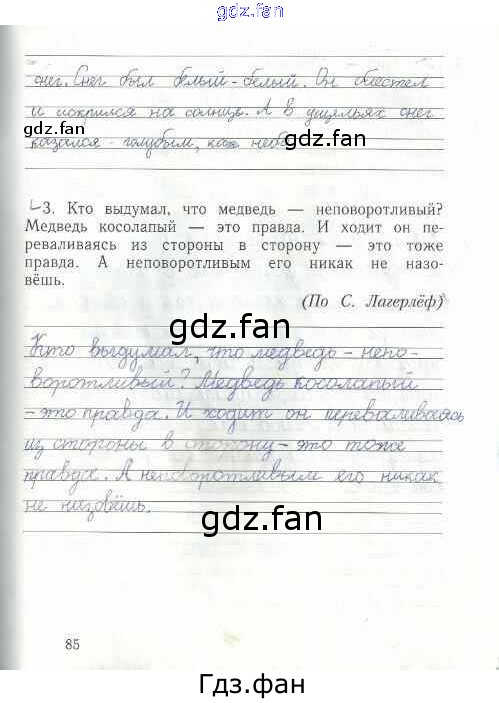 gdz.fan
gdz.fan
снег. Снег был белый-белый. Он блестел
и искрился на солнце. А в ущельях снег
gdz.fan
казался голубым, как небо
gdz.fan
3. Кто выдумал, что медведь — неповоротливый?
Медведь косолапый — это правда. И ходит он пе-
реваливаясь из стороны в сторону — это тоже
правда. А неповоротливым его никак не назо-
вёшь.
(По С. Лагерлёф)
gdz.fan
Кто выдумал, что медведь - непо-
воротливый? Медведь косолапый
- это правда. И ходит он переваливаясь
из стороны в сторону - это тоже
правда. А неповоротливым его никак
не назовёшь.
gdz.fan
85
Гдз.фан